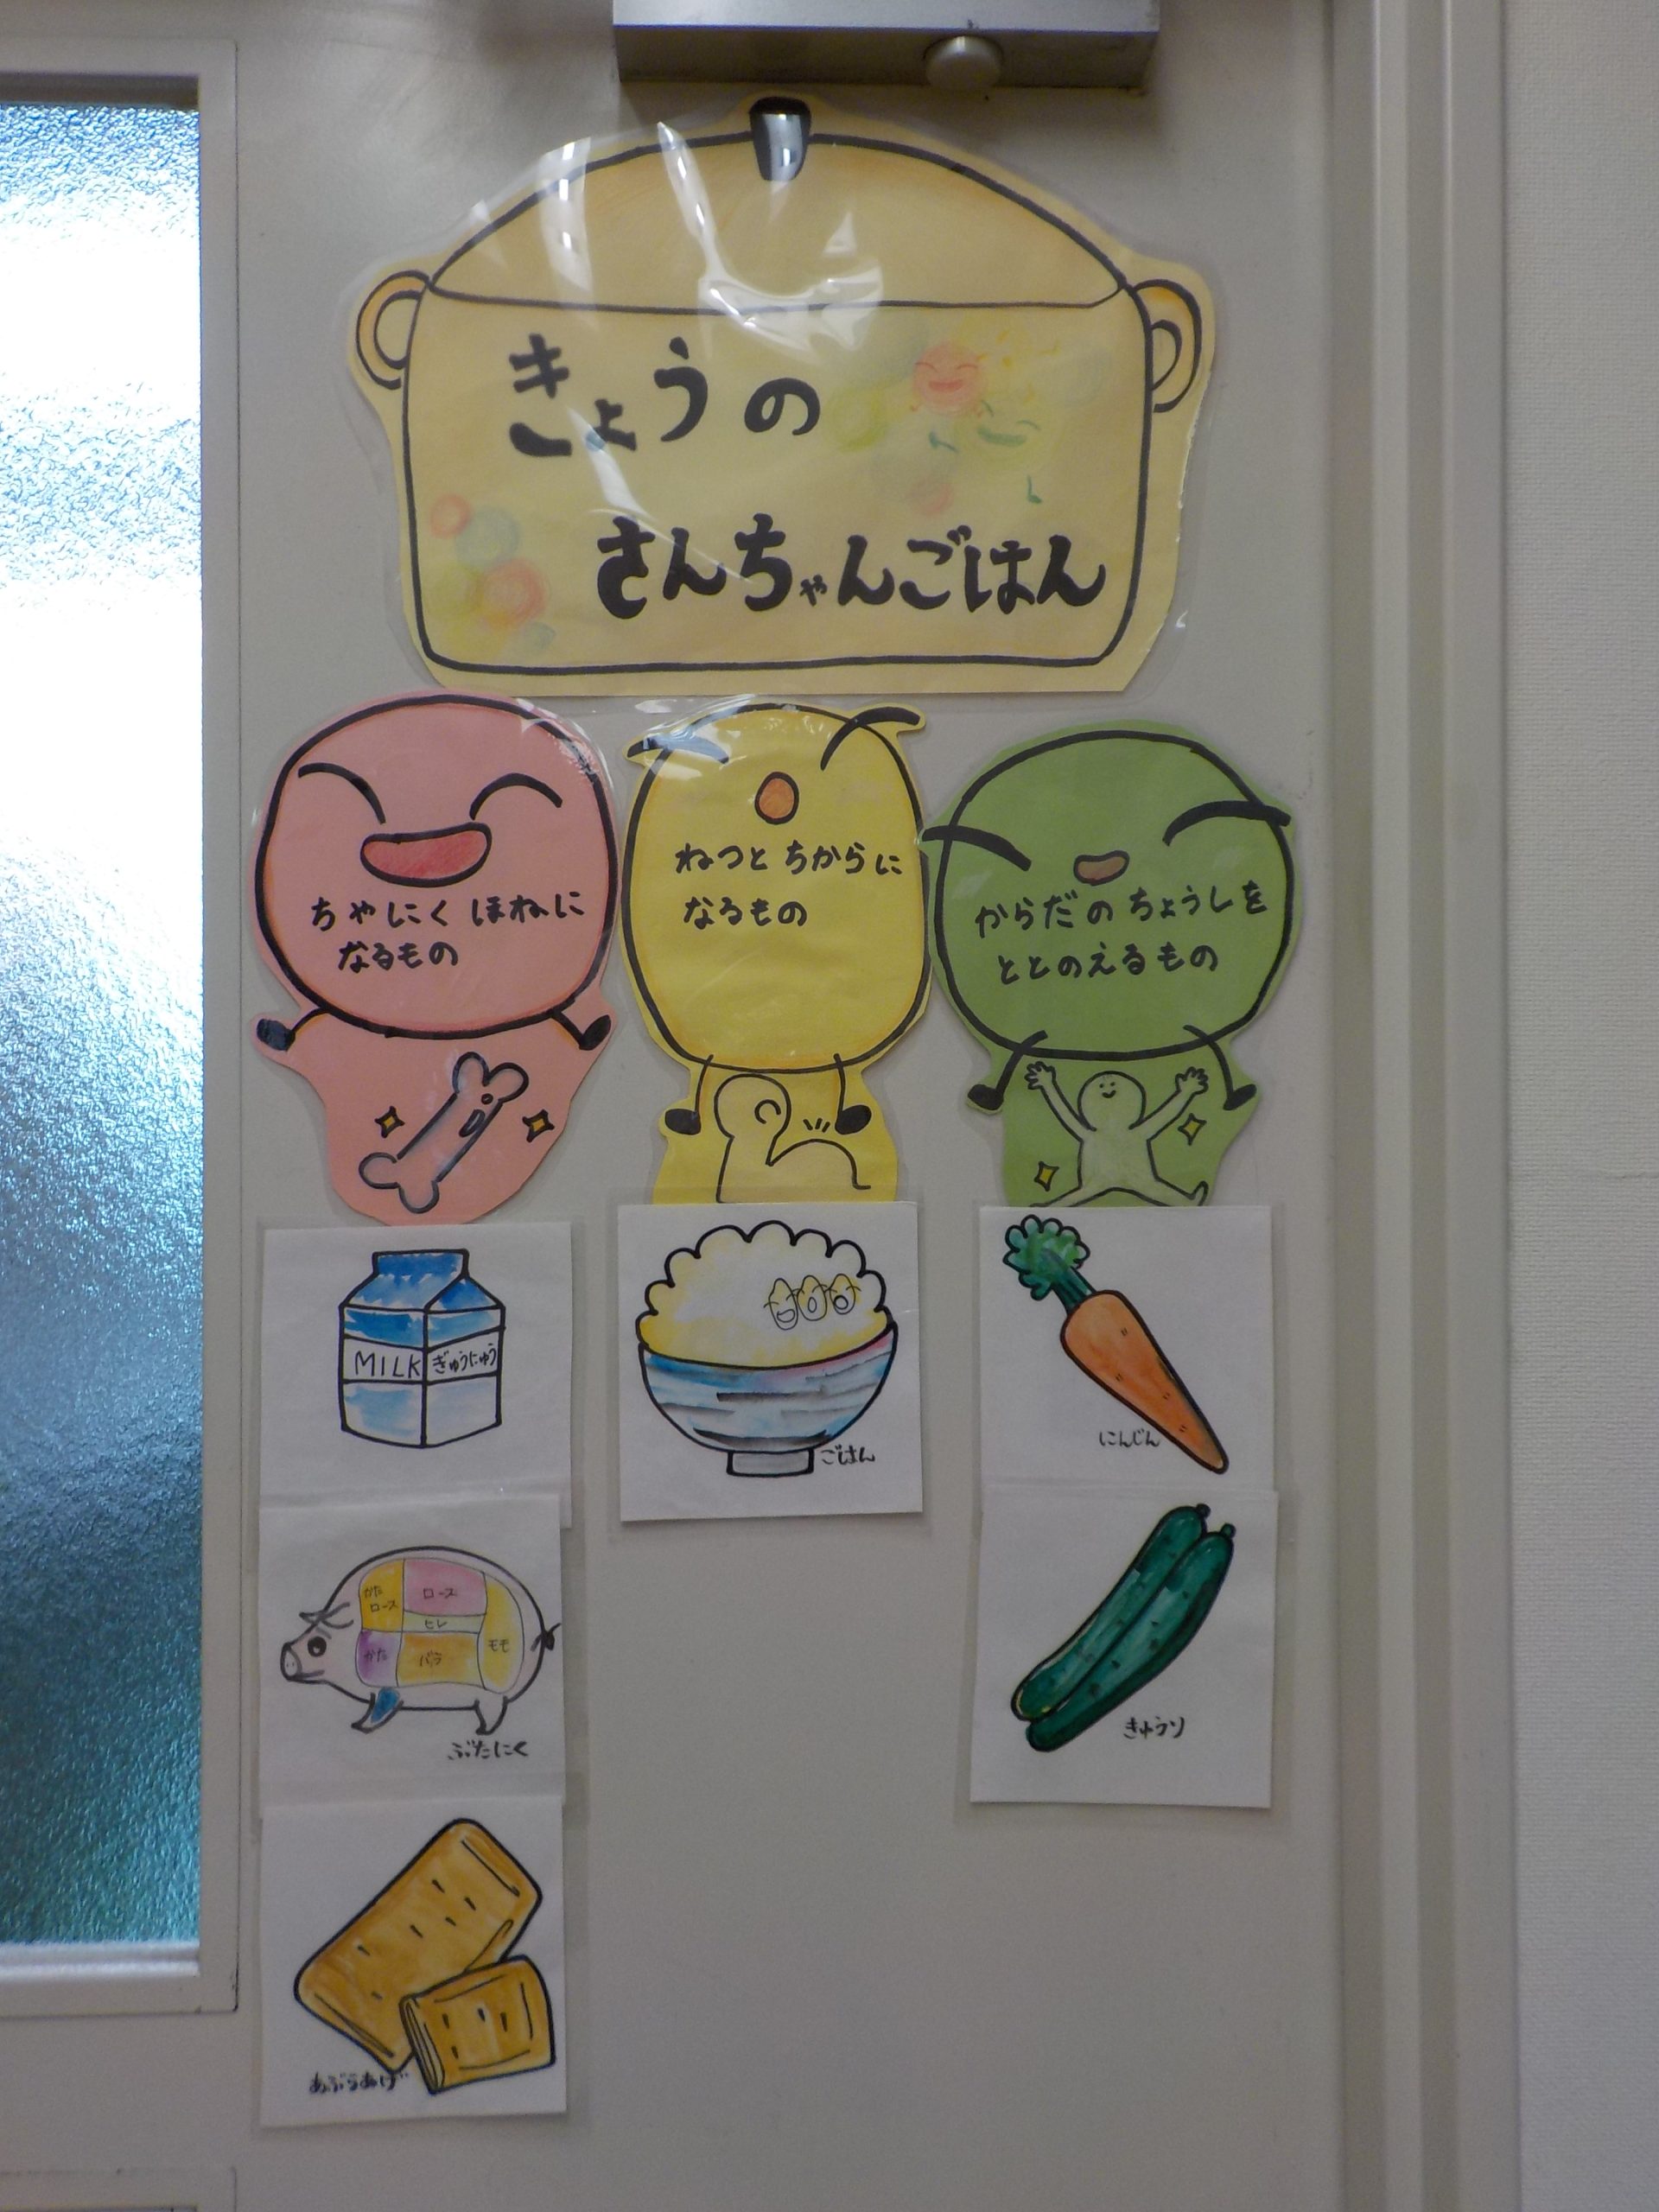 きょうの
さんちゃんごはん
ちやにく ほねに
なるもの
ねつと ちからに
なるもの
からだの ちょうしを
ととのえるもの
MILK ぎゅうにゅう
ごはん
にんじん
かた
ロース
ロース
ヒレ
かた
バラ
モモ
ぶたにく
きゅうり
あぶらあげ